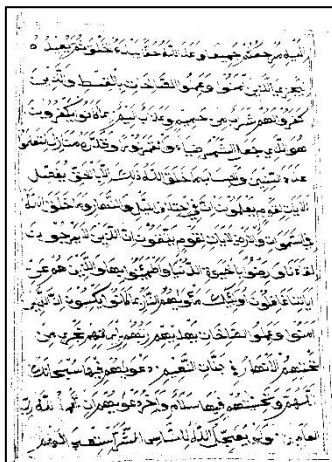 اليه مرجعكم جميعا وعد الله حقا انه يبدؤ الخلق ثم يعيده
ليجزي الذين امنوا وعملوا الصالحات بالقسط والذين
كفروا لهم شراب من حميم وعذاب اليم بما كانوا يكفرون
هو الذي جعل الشمس ضياء والقمر نورا وقدره منازل لتعلموا
عدد السنين والحساب ما خلق الله ذلك الا بالحق يفصل
الايات لقوم يعلمون ان في اختلاف اليل والنهار وما خلق الله
في السموات والارض لايات لقوم يتقون ان الذين لا يرجون
لقاءنا ورضوا بالحيوة الدنيا واطمانوا بها والذين هم عن
اياتنا غافلون اولئك ماويهم النار بما كانوا يكسبون ان الذين
امنوا وعملوا الصالحات يهديهم ربهم بايمانهم تجري من
تحتهم الانهار في جنات النعيم دعويهم فيها سبحانك
اللهم وتحيتهم فيها سلام واخر دعويهم ان الحمد لله رب
العالمين ولو يعجل الله للناس الشر